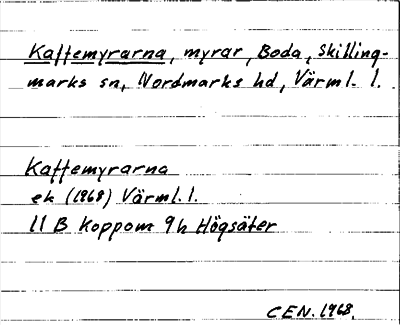 Kaffemyrarna, myrar, Boda, Skilling-
marks sn, Nordmarks hd, Värml. l.
Kaffemyrarna
ek (1968) Värml. l.
11 B Koppom 9h Högsäter
CEN. 1968.